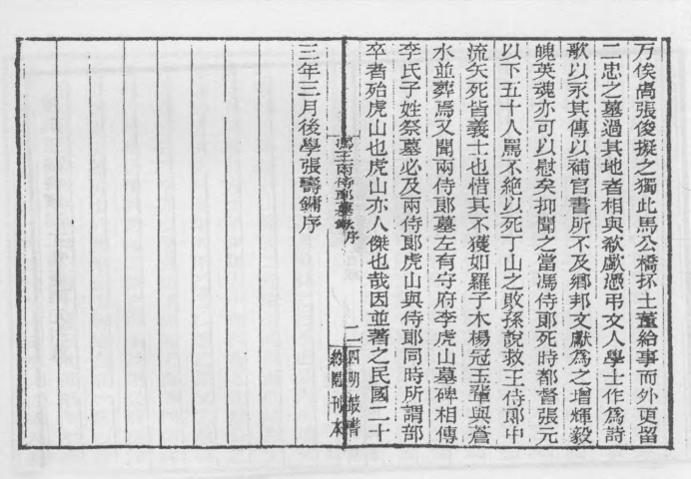 万俟卨張俊擬之獨此馬公橋抔土董給事而外更留
二忠之墓過其地者相與欷歔憑弔文人學士作爲詩
歌以永其傳以補官書所不及鄉邦文獻爲之增輝毅
魄英魂亦可以慰矣抑聞之當馮侍郎死時都督張元
以下五十人罵不絕以死丁山之敗孫說救王侍郎中
流矢死皆義士也惜其不獲如羅子木楊冠玉輩與蒼
水並葬焉又聞兩侍郎墓左有守府李虎山墓碑相傳
李氏子姓祭墓必及兩侍郎虎山與侍郎同時所謂部
卒者殆虎山也虎山亦人傑也哉因並著之民國二十
馮王兩侍郎墓錄 序
二
四明叢書
約園刊本
三年三月後學張壽鏞序